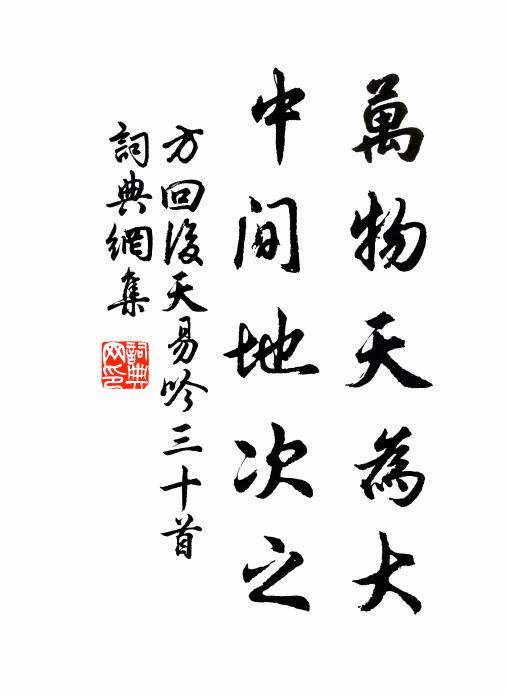 萬物天為大
中間地次之
方回後天易吟三十首
詞典網集
詞典网印